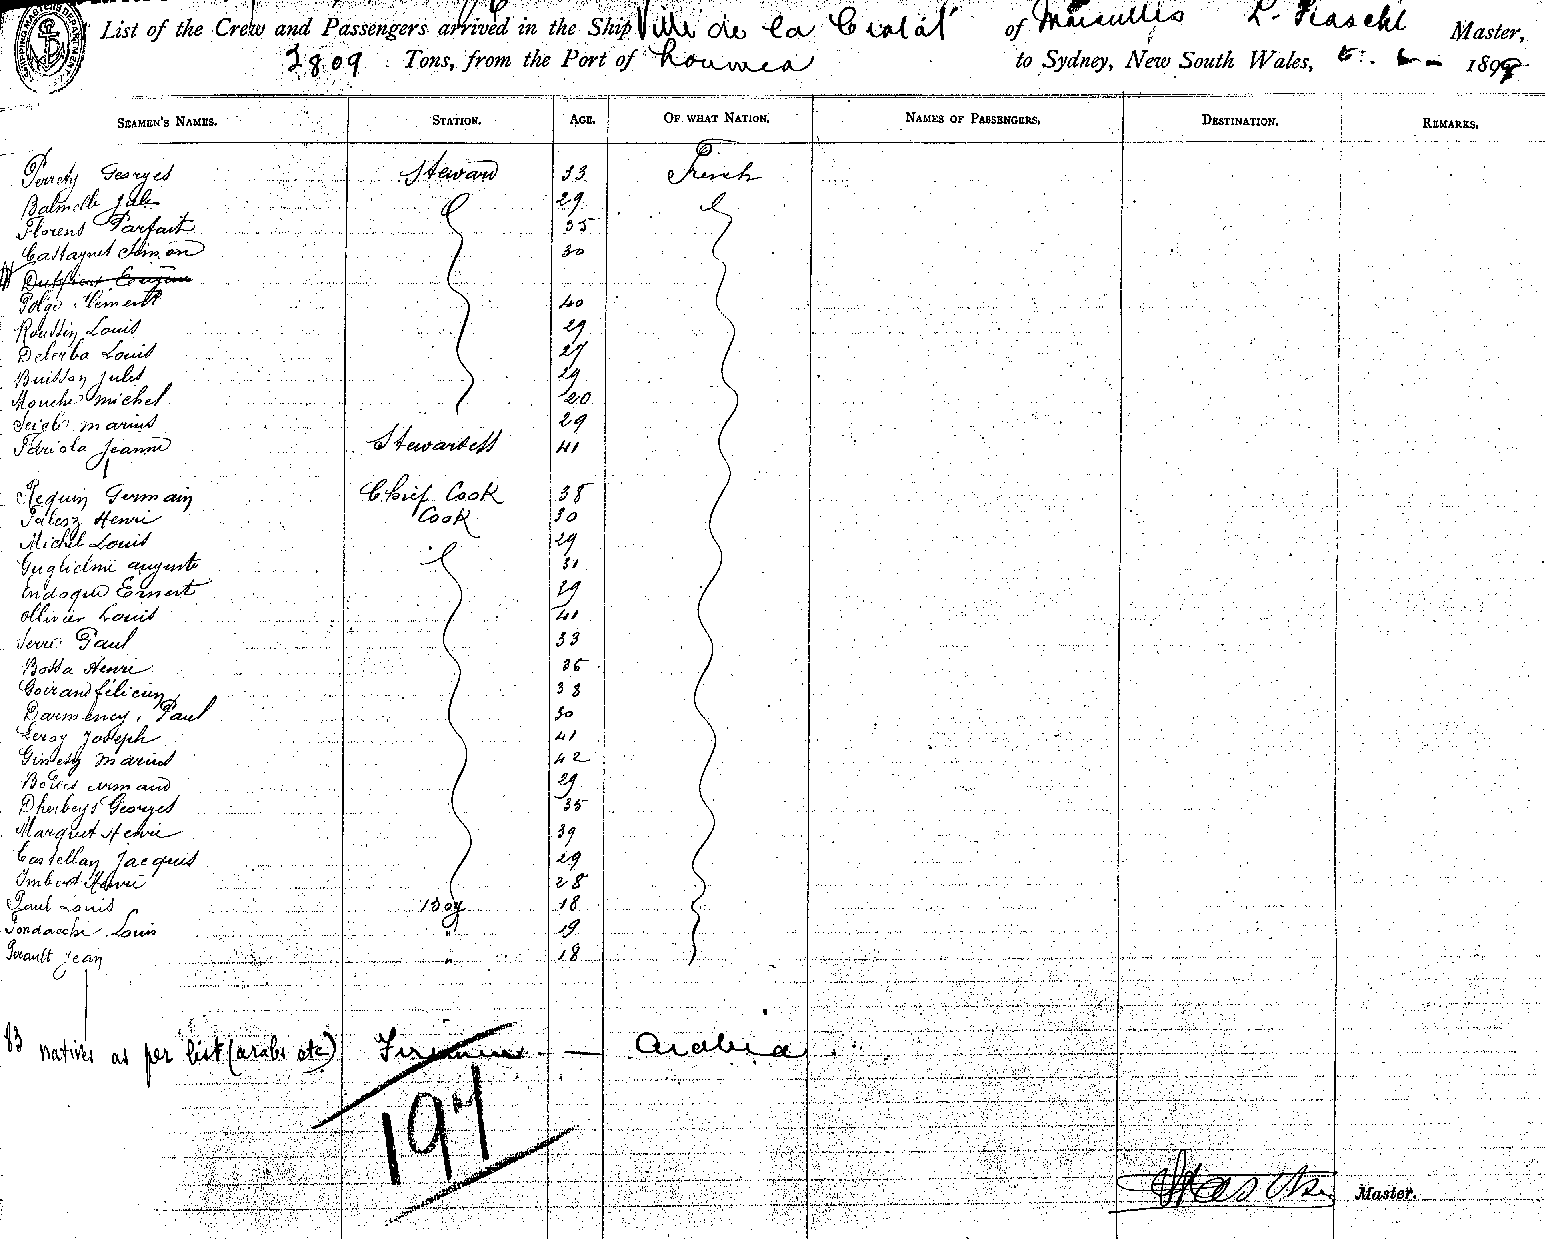 List of the Crew and Passengers arrived in the Ship Ville de la Ciotat of Marseilles Master,
Tons, from the Port of Noumea to Sydney, New South Wales, 189
SEAMEN'S NAMES. STATION. AGE. OF WHAT NATION. NAMES OF PASSENGERS. DESTINATION. REMARKS.
Georges Steward 33 French
Balmelle Jules 29
Florens Parfait 35
Castagnet Simon 30
40
Roustin Louis 29
Louis
Buisson Jules 29
Mouche Michel 20
Marius 29
Jeanne Stewardess 41
Requin Germain Chief Cook 38
Henri Cook 30
Michel Louis 29
Guglielmi Auguste 31
Ernest 29
Ollivier Louis 41
Serre Paul 33
Henri
Goirand Félicien 38
Paul 30
Leroy Joseph 41
Marius 42
Armand 29
Dherbeys Georges 35
Marquet Henri 39
Castellan Jacques 29
Imbert Henri 28
Paul Louis Boy 18
Louis " 19
Jean " 18
83 natives as per list (arabs etc) Firemen — Arabia
197
Master.